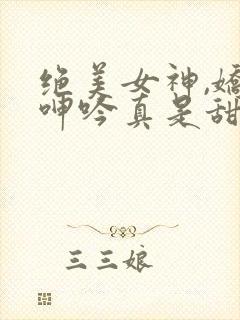 绝美女神,嬌
呻吟真是甜
三三娘